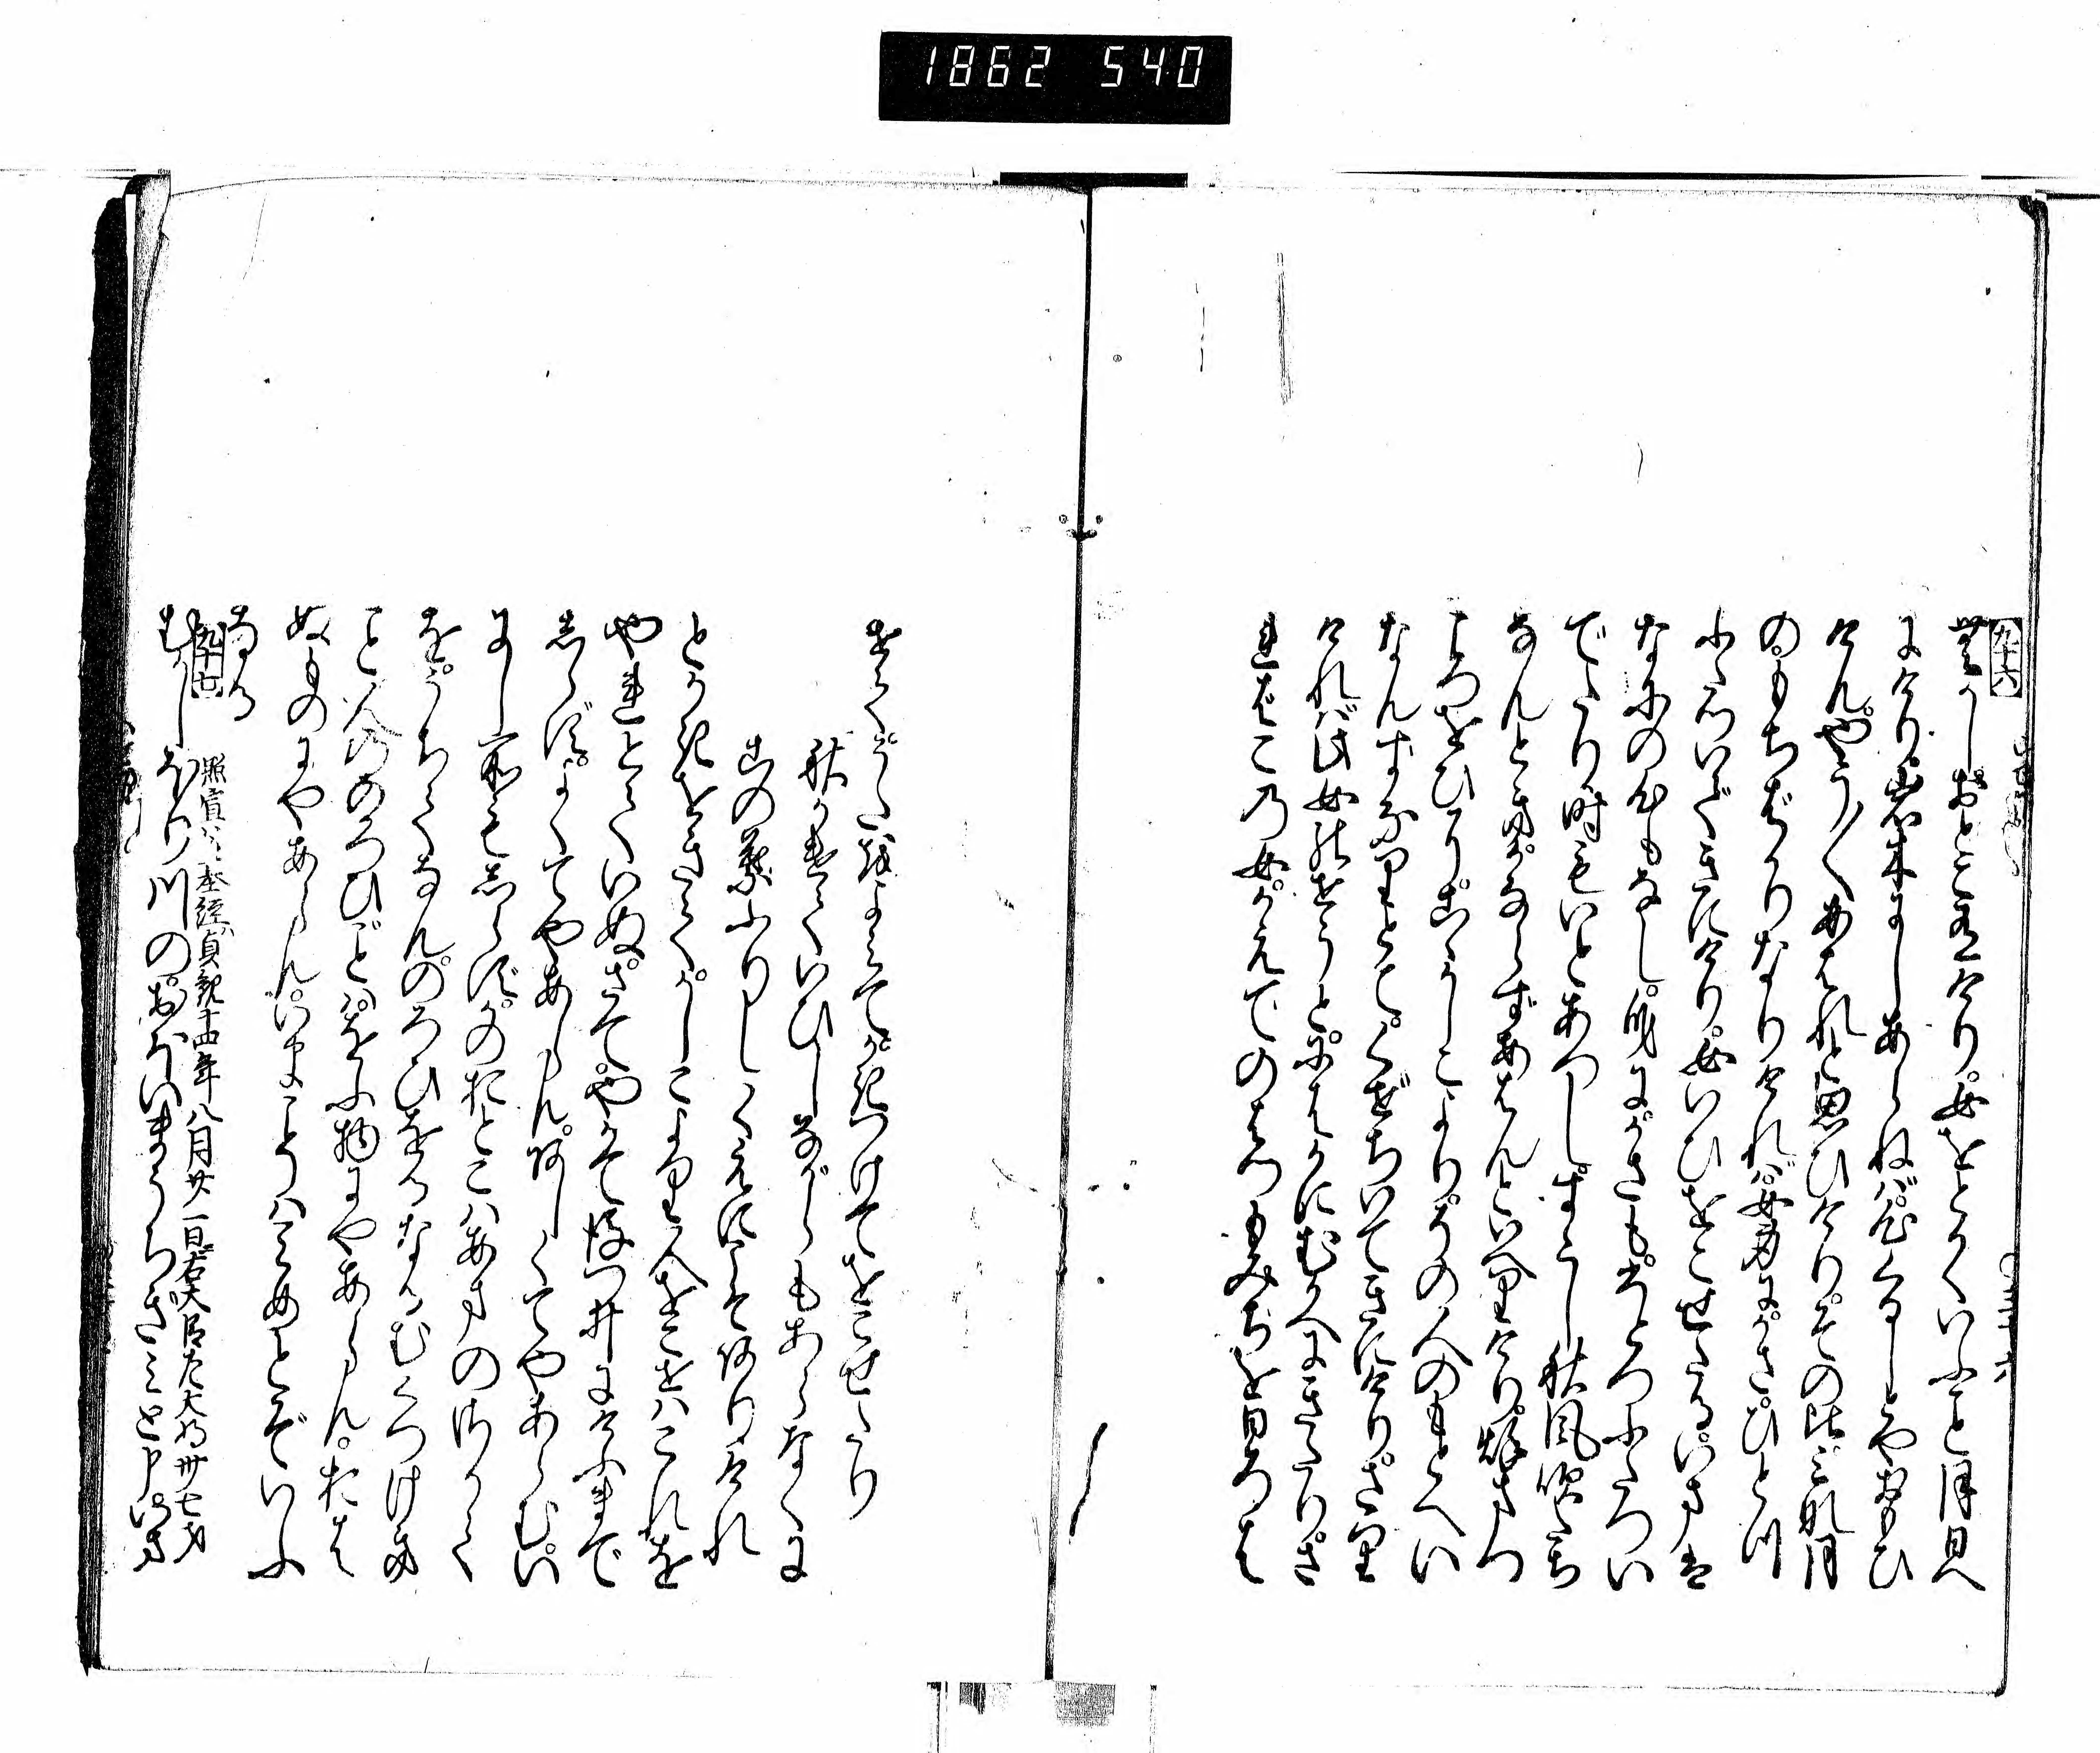 1862 540
九十六
むかしおとこ有けり女をとかくいふこと月日へ
にけり岩木にしあらねば心くるしとやおもひ
けんやう〱あはれと思ひけりその比みな月
のもちばかりなりければ女身にかさひとつ
ふたついできにけり女いひをこせたるいまは
なにの心もなし身にかさもひとつふたつい
でたり時もいとあつしすこし秋風吹たち
なんときかならずあはんといへりけり秋まつ
ころをひにこゝかしこよりその人のもとへい
なんずなりとてくぜちいできにけりさり
ければ此女のせうとにはかにむかへにきたりさ
ればこの女かえでのはつもみぢをひろは
せてうたをよみてかきつけてをこせたり
秋かけていひしながらもあらなくに
木の葉ふりしくえにこそありけれ
とかきをきてかしこより人をこせばこれを
やれとていぬさてやかて後つゐにけふまで
しらずよくてやあらんあしくてやあらむい
にし所もしらずかのおとこはあまのさかて
をうちてなんのろひをるなるむくつけき
こと人ののろひごとはをふ物にやあらんおは
ぬものにやあらんいまこそは見めとぞいふ
なる
九十七
昭宣公基経貞観十四年八月廿一日右大臣左大将卅七才
むかしほり川のおほいまうちぎみと申いま